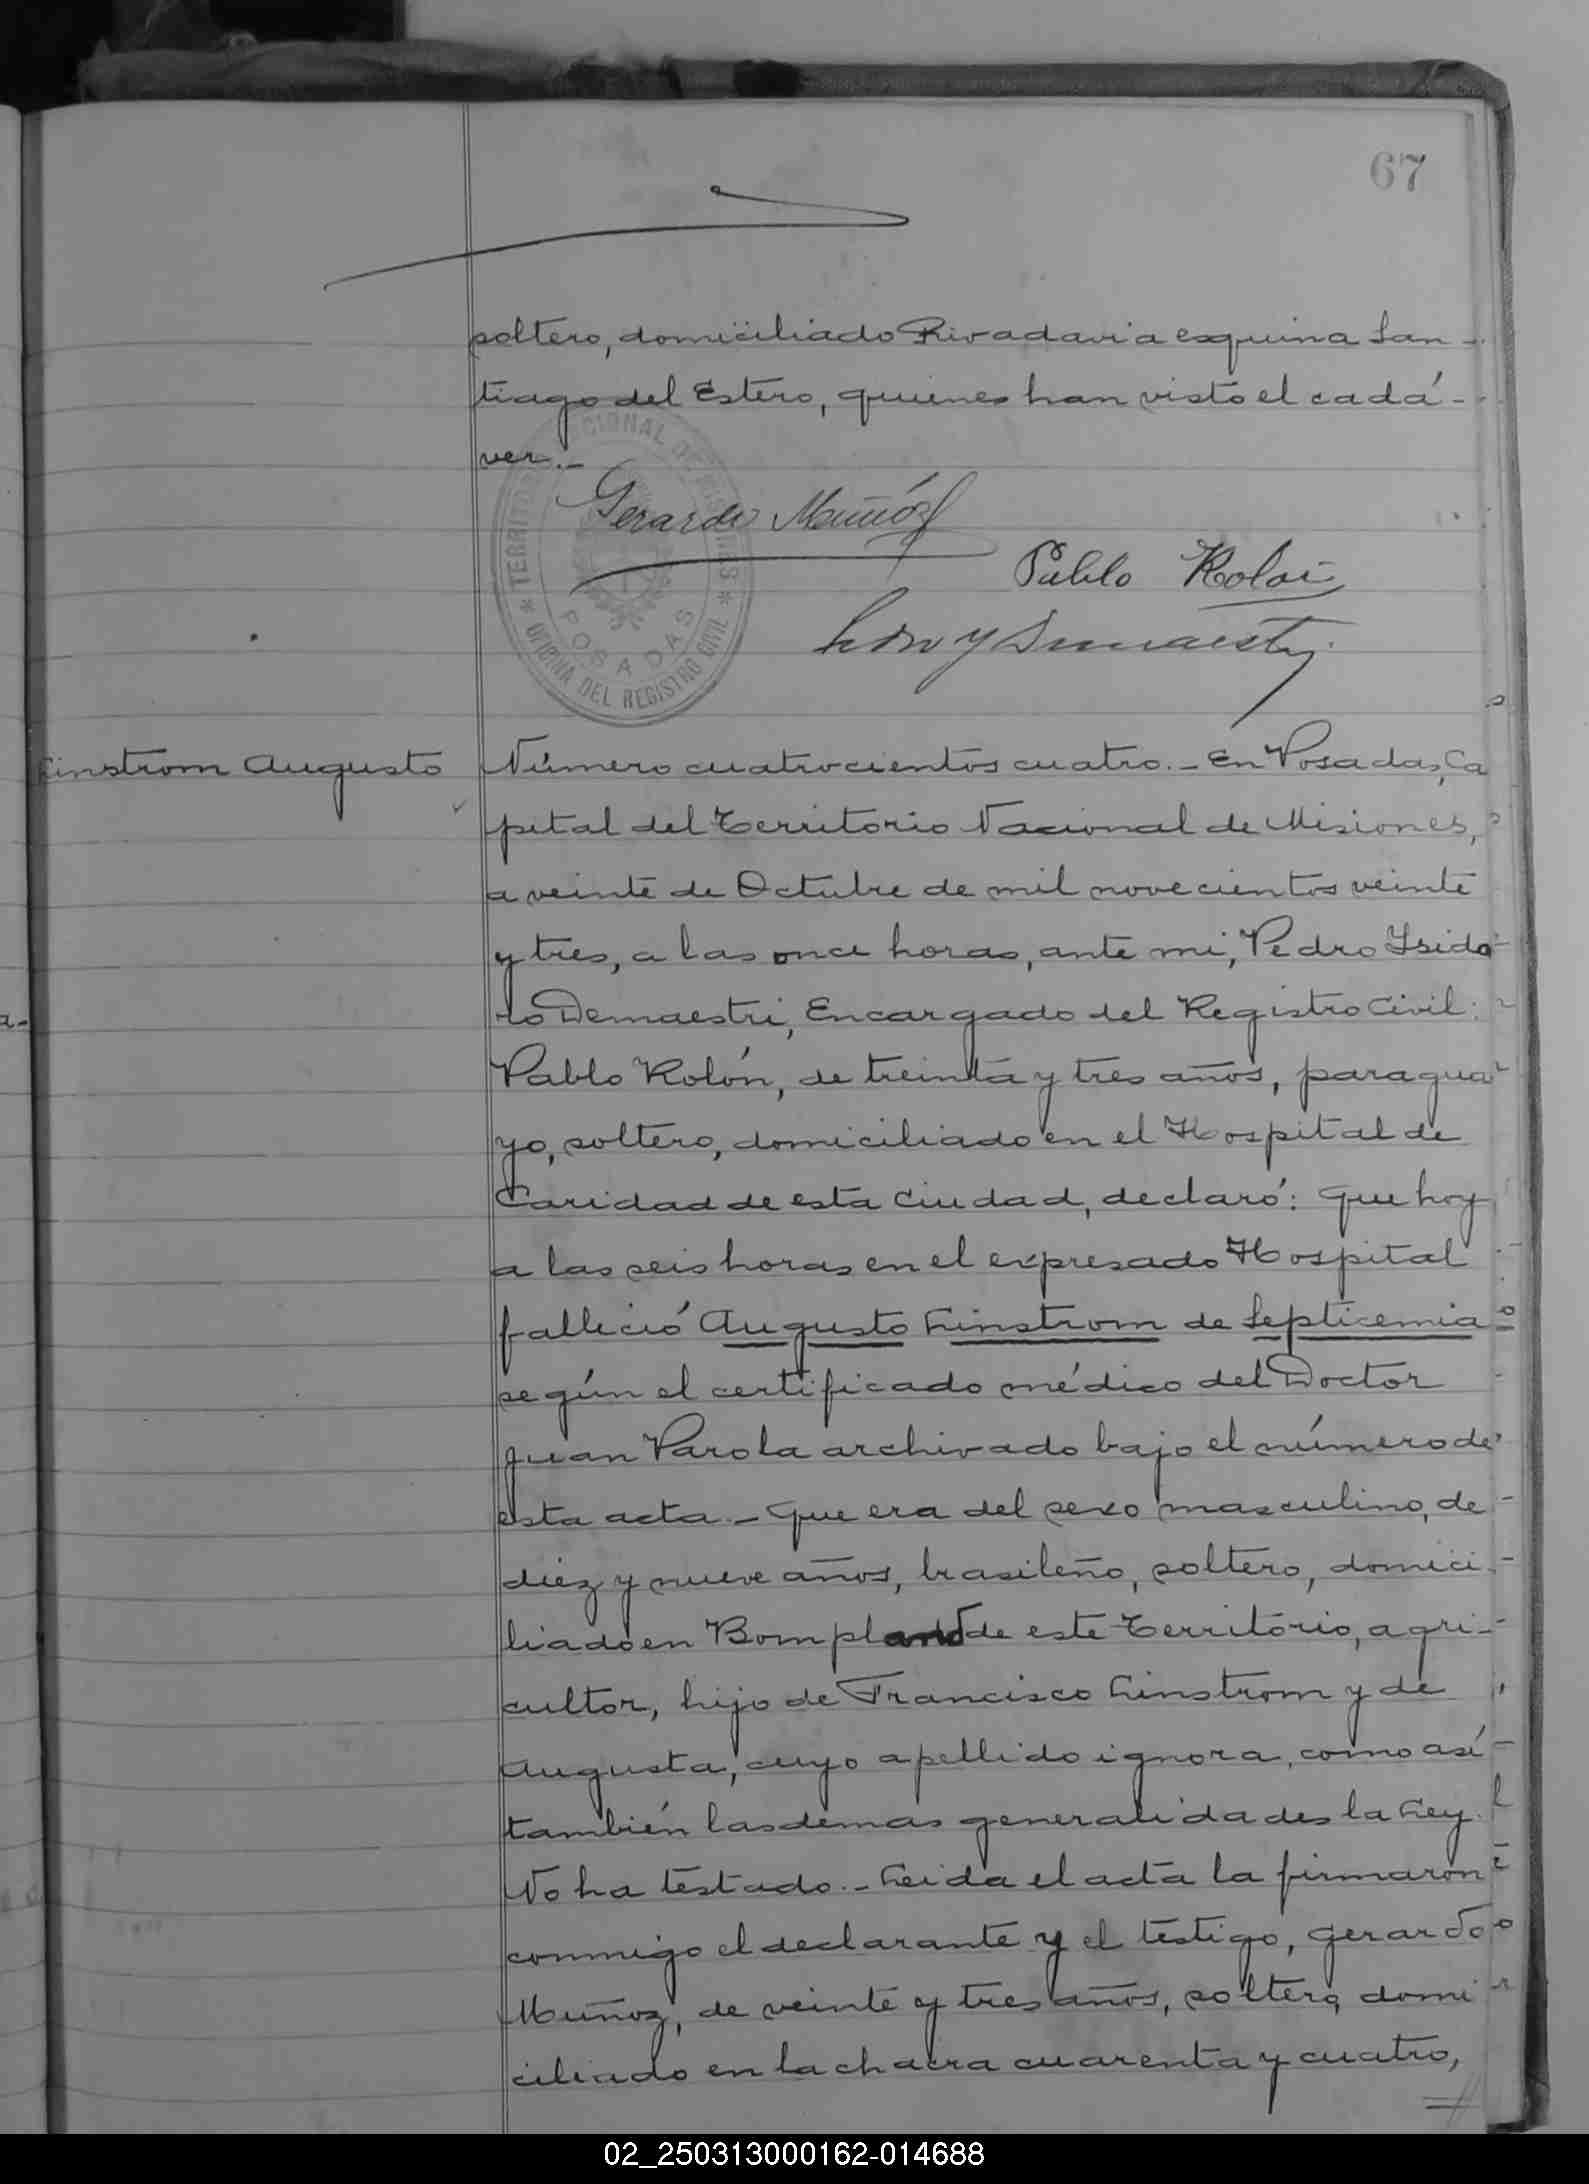 67
soltero, domiciliado Rivadavia esquina San-
tiago del Estero, quienes han visto el cadá-
ver.-
TERRITORIO NACIONAL DE MISIONES
POSADAS
OFICINA DEL REGISTRO CIVIL
Gerardo Muñóz
Pablo Rolón
Linstrom Augusto
Número cuatrocientos cuatro.- En Posadas, Ca
pital del Territorio Nacional de Misiones,
a veinte de Octubre de mil novecientos veinte
y tres, a las once horas, ante mi, Pedro Ysido
ro Demaestri, Encargado del Registro Civil:
Pablo Rolón, de treinta y tres años, paragua
yo, soltero, domiciliado en el Hospital de
Caridad de esta Ciudad, declaró: Que hoy
a las seis horas en el expresado Hospital
falleció Augusto Linstrom de Septicemia
según el certificado médico del Doctor
Juan Parola archivado bajo el número de
esta acta.- Que era del sexo masculino, de
diez y nueve años, brasileño, soltero, domici
liado en Bompland de este Territorio, agri-
cultor, hijo de Francisco Linstrom y de
Augusta, cuyo apellido ignora, como así
también las demas generalidades la Ley.
No ha testado.- Leida el acta la firmaron
conmigo el declarante y el testigo, Gerardo
Muñoz, de veinte y tres años, soltero, domi
ciliado en la chacra cuarenta y cuatro,
02_250313000162-014688